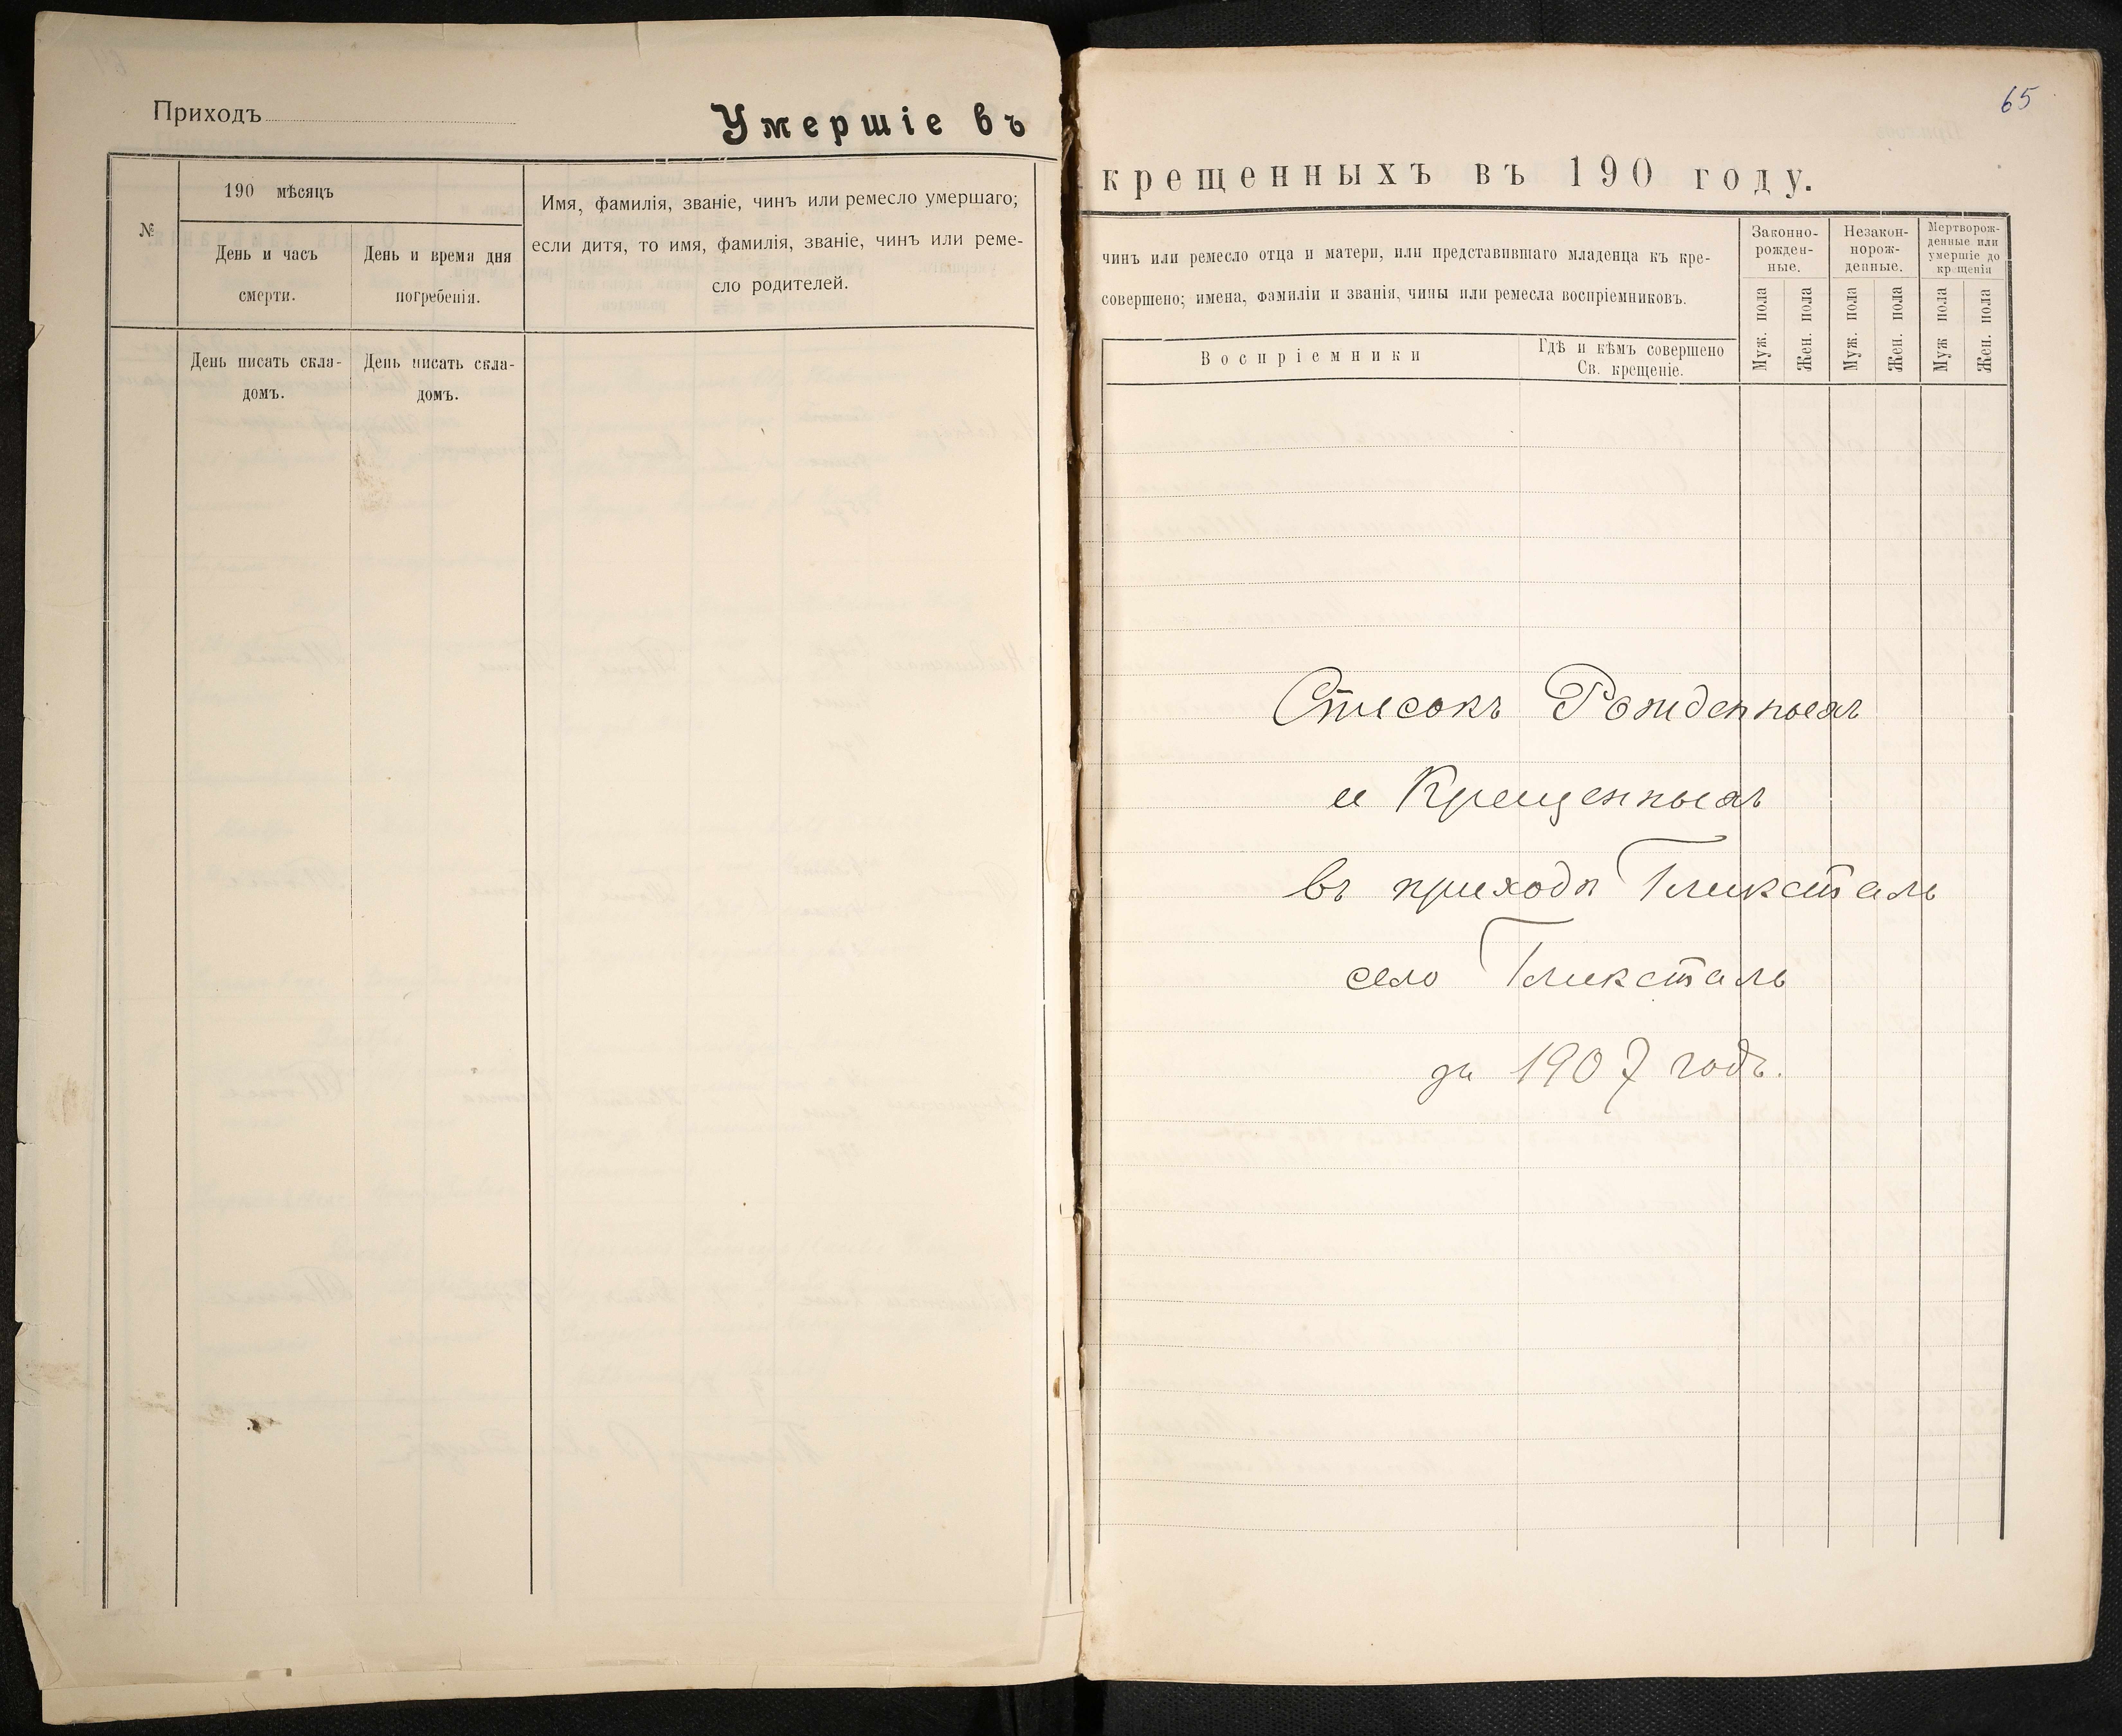 Приходъ
Умершіе въ
№
190 мѣсяцъ
День и часъ
смерти.
День и время дня
погребенія.
Имя, фамилія, званіе, чинъ или ремесло умершаго;
если дитя, то имя, фамилія, званіе, чинъ или реме-
сло родителей.
День писать скла-
домъ.
День писать скла-
домъ.
65
крещенныхъ въ 190 году.
чинъ или ремесло отца и матери, или представившаго младенца къ кре-
совершено; имена, фамиліи и званія, чины или ремесла воспріемниковъ.
Воспріемники
Гдѣ и кѣмъ совершено
Св. крещеніе.
Законно-
рожден-
ные.
Незакон-
норож-
денные.
Мертворож-
денные или
умершіе до
крещенія
Муж. пола
Жен. пола
Муж. пола
Жен. пола
Муж пола
Жен. пола
Списокъ Рожденныхъ
и Крещенныхъ
въ приходѣ Гликсталь
село Гликсталь
за 1907 годъ.